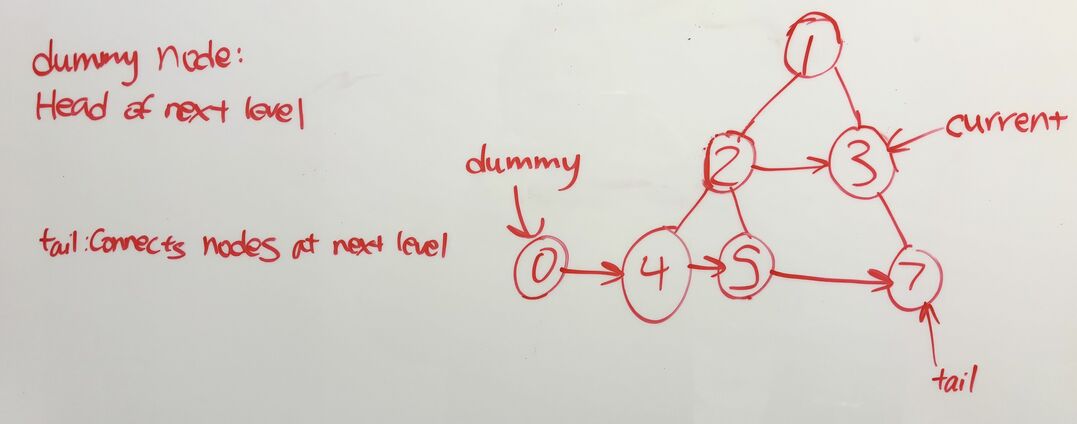 dummy node:
Head of next level
tail:Connects nodes at next level
1
2
3
current
dummy
0
4
5
7
tail